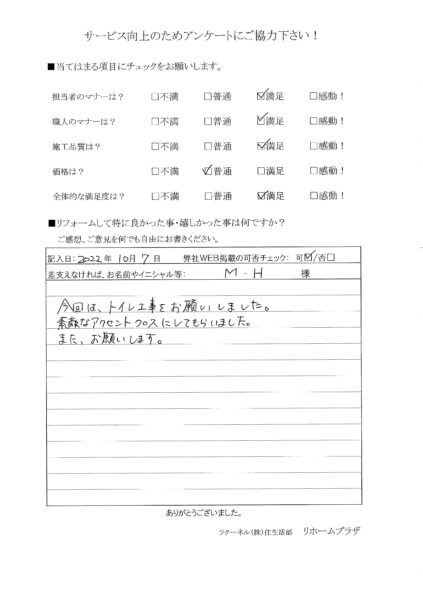 サービス向上のためアンケートにご協力下さい！
■当てはまる項目にチェックをお願いします。
担当者のマナーは？ □不満 □普通 ☑満足 □感動！
職人のマナーは？ □不満 □普通 ☑満足 □感動！
施工品質は？ □不満 □普通 ☑満足 □感動！
価格は？ □不満 ☑普通 □満足 □感動！
全体的な満足度は？ □不満 □普通 ☑満足 □感動！
■リフォームして特に良かった事・嬉しかった事は何ですか？
ご感想、ご意見を何でも自由にお書きください。
記入日：2022年 10月 7日 弊社WEB掲載の可否チェック： 可☑/否□
差支えなければ、お名前やイニシャル等： M-H 様
今回は、トイレ工事をお願いしました。
素敵なアクセントクロスにしてもらいました。
また、お願いします。
ありがとうございました。
ラクーネル(株)住生活部 リホームプラザ